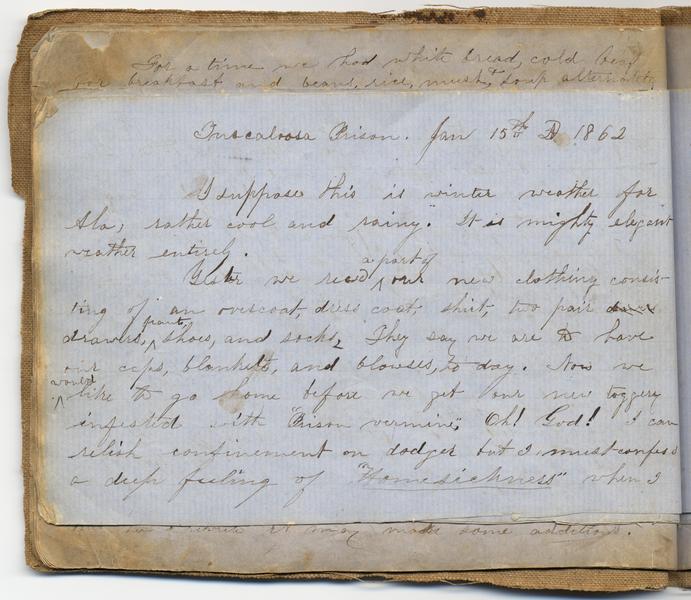 For a time we had white bread, cold beef
for breakfast and beans, rice, mush, & soup alternately
Tuscaloosa Prison. Jan 15th AD 1862
I suppose this is winter weather for
Ala; rather cool and rainy. It is mighty elegant
weather entirely.
a part of
Yester we recd our new clothing consis-
ting of an overcoat, dress coat, shirt, two pair
pants
drawers, shoes, and socks, They say we are to have
our caps, blankets, and blouses, to day. Now we
would
like to go home before we get our new toggery
infested with "Prison vermine", Oh! God! I can
relish confinement on dodger but I must confess
a deep feeling of "Homesickness" when I
it may made some additions.